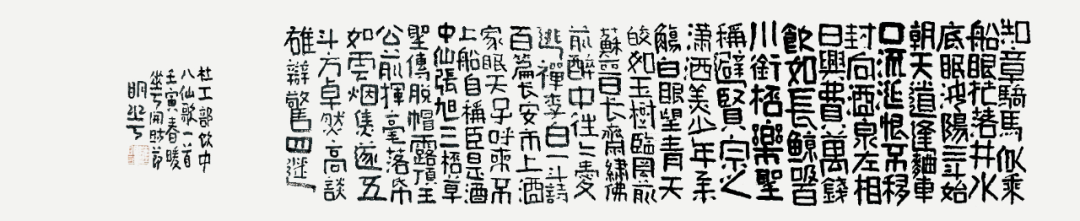 知章騎馬似乘
船眼花落井水
底眠汝陽三斗始
朝天道逢麴車
口流涎恨不移
封向酒泉左相
日興費萬錢
飲如長鯨吸百
川銜桮樂聖
稱避賢宗之
瀟洒美少年舉
觴白眼望青天
皎如玉樹臨風前
蘇晉長齋繡佛
前醉中往々愛
逃禪李白一斗詩
百篇長安市上酒
家眠天子呼來不
上船自稱臣是酒
中仙張旭三桮草
聖傳脫帽露頂王
公前揮毫落帋
如雲烟焦遂五
斗方卓然高談
雄辯驚四筵
杜工部飲中
八仙歌一首
壬寅春暖